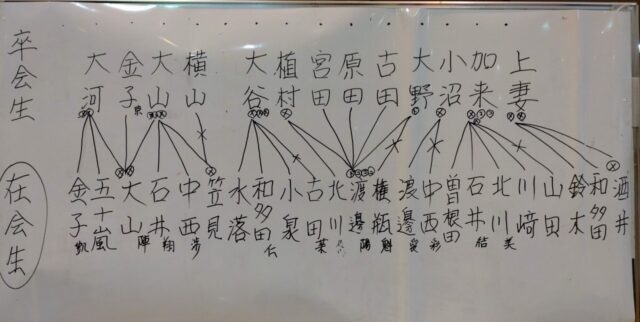 卒会生
大河
金子
大山
横山
大谷
植村
宮田
原田
古田
大野
小沼
加来
上妻
在会生
金子凱
五十嵐
大山陣
石井翔
中西歩
笠見
水落
和多田仁
小泉
古田葉
北川
渡邊陽
横瓶魁
渡邊愛
中西彩
曽根田
石井結
北川美
川﨑
山田
鈴木
和多田
酒井